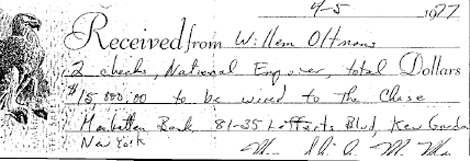 4-5 1977
Received from Willem Oltmans
2 checks, National Enquirer, total Dollars
$15,000.00 to be wired to The Chase
Manhattan Bank 81-35 Lefferts Blvd, Kew Gardens
New York